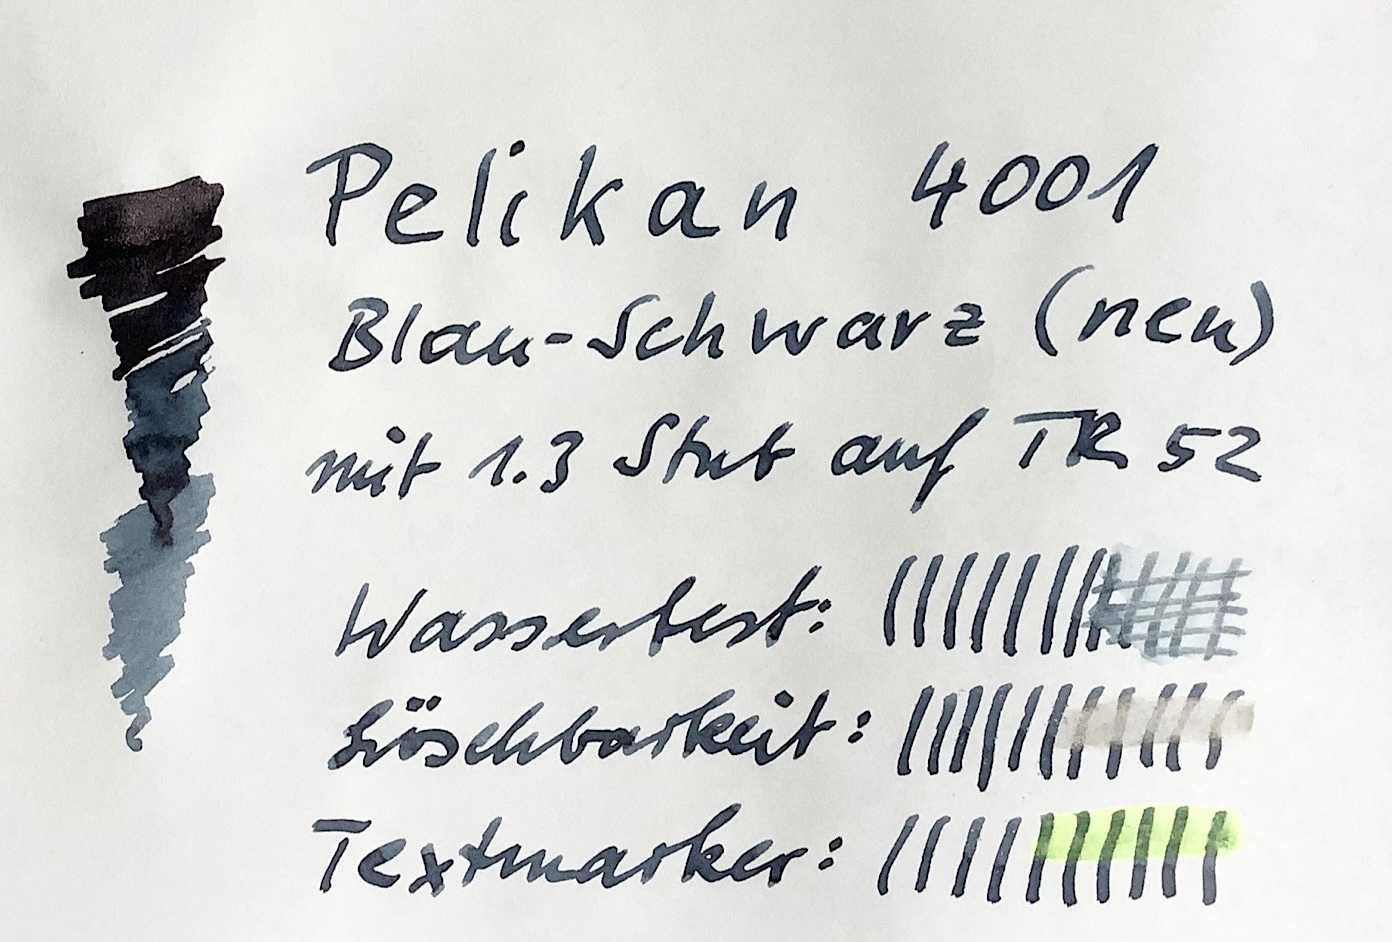 Pelikan 4001
Blau-Schwarz (neu)
mit 1.3 Stub auf TR 52
Wassertest:
Löschbarkeit:
Textmarker: